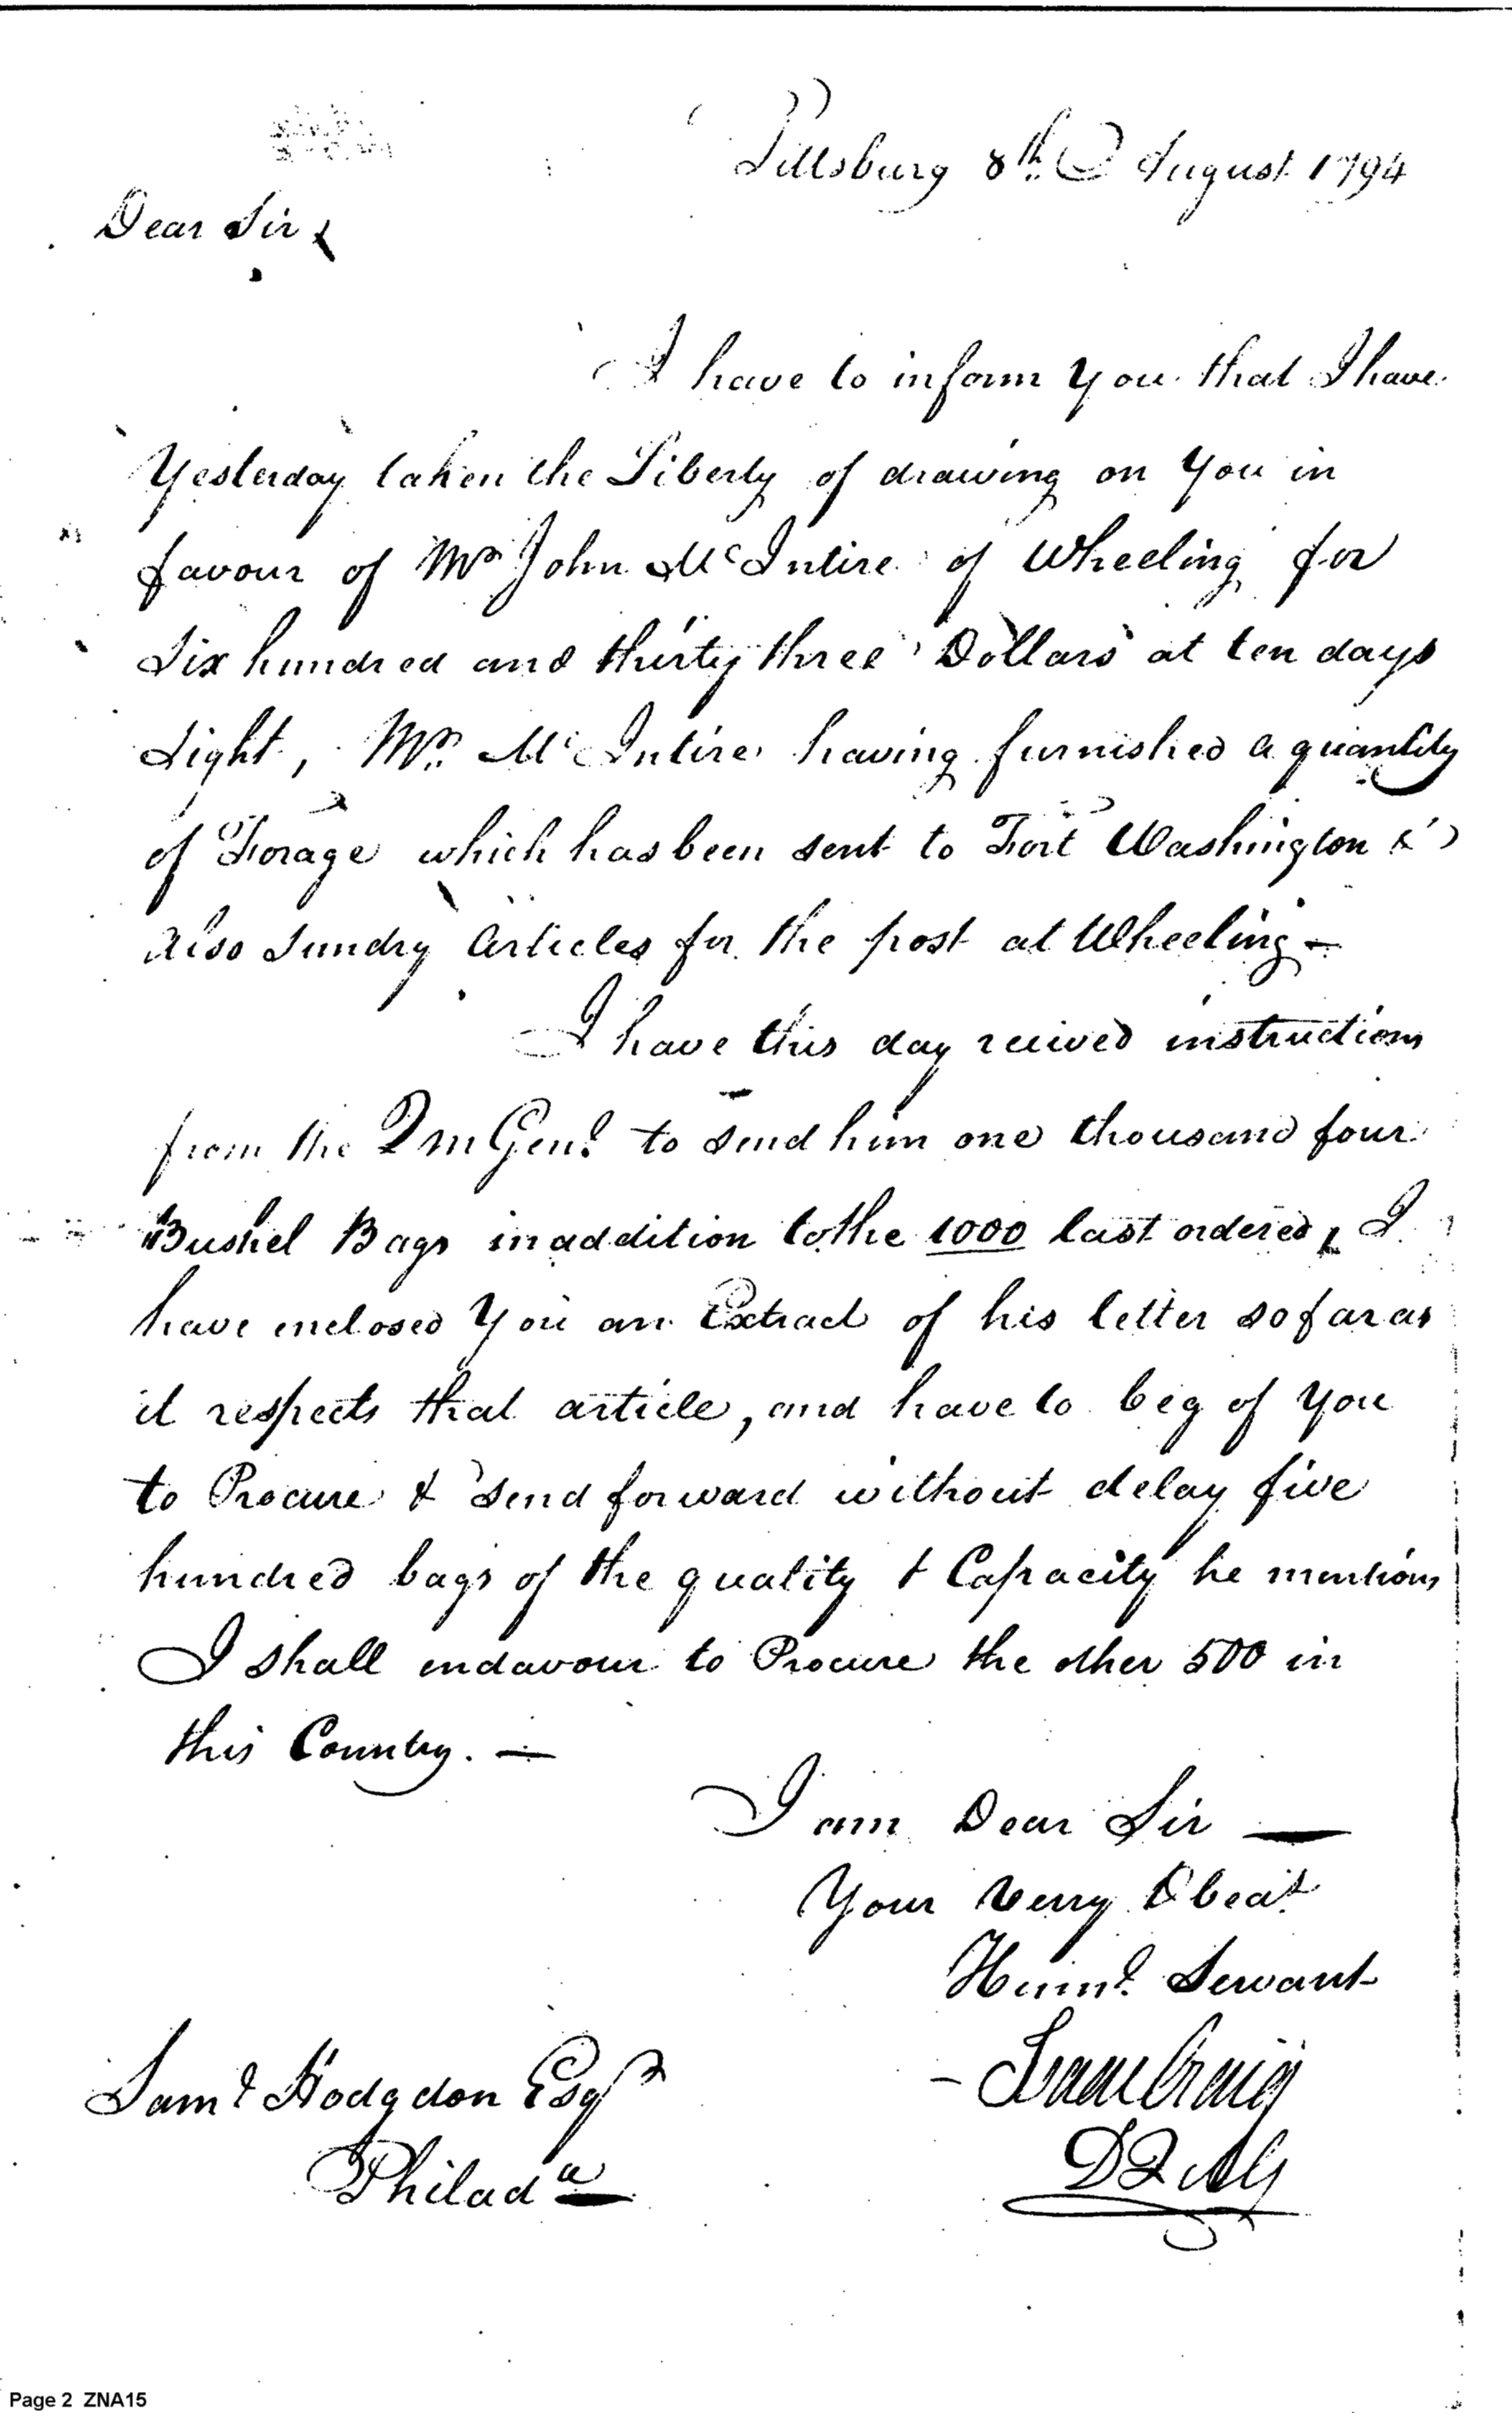 Pittsburg 8th August 1794
Dear Sir
I have to inform You that I have
Yesterday taken the Liberty of drawing on You in
favour of Mr John McIntire of Wheeling for
Six hundred and thirty three Dollars at ten days
Sight, Mr. McIntire having furnished a quantity
of Forage which has been sent to Fort Washington &
also Sundry Articles for the post at Wheeling —
I have this day recived instructions
from the Q M Genl. to send him one thousand four
Bushel Bags in addition to the 1000 last ordered, I
have enclosed You an Extract of his letter so far as
it respects that article, and have to beg of You
to Procure & Send forward without delay five
hundred bags of the quality & Capacity he mentions
I shall endavour to Procure the other 500 in
this Country. —
I am Dear Sir —
Your Verry Obedt.
Huml. Servant
- Isaac Craig
DQMG
Saml Hodgdon Esqr
Philada
Page 2 ZNA15